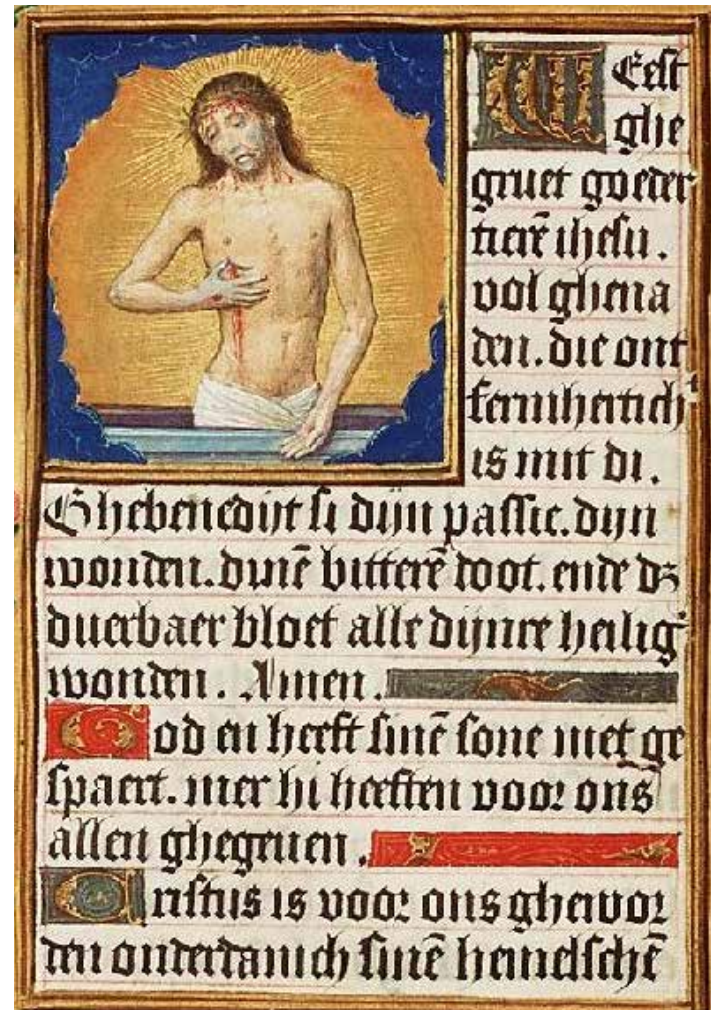 Weest
ghe
gruet goeder
tierē ihesu.
vol ghena
den. die ont
fermhertich
is mit di.
Ghebenedijt si dijn passie. dijn
wonden. dinē bitterē doot. ende dz
duerbaer bloet alle dijnre heilig
wonden. Amen.
God en heeft sinē sone niet ge
spaert. mer hi heeften voor ons
allen ghegeuen.
Cristus is voor ons ghewor
den onderdanich sinē hemelschē